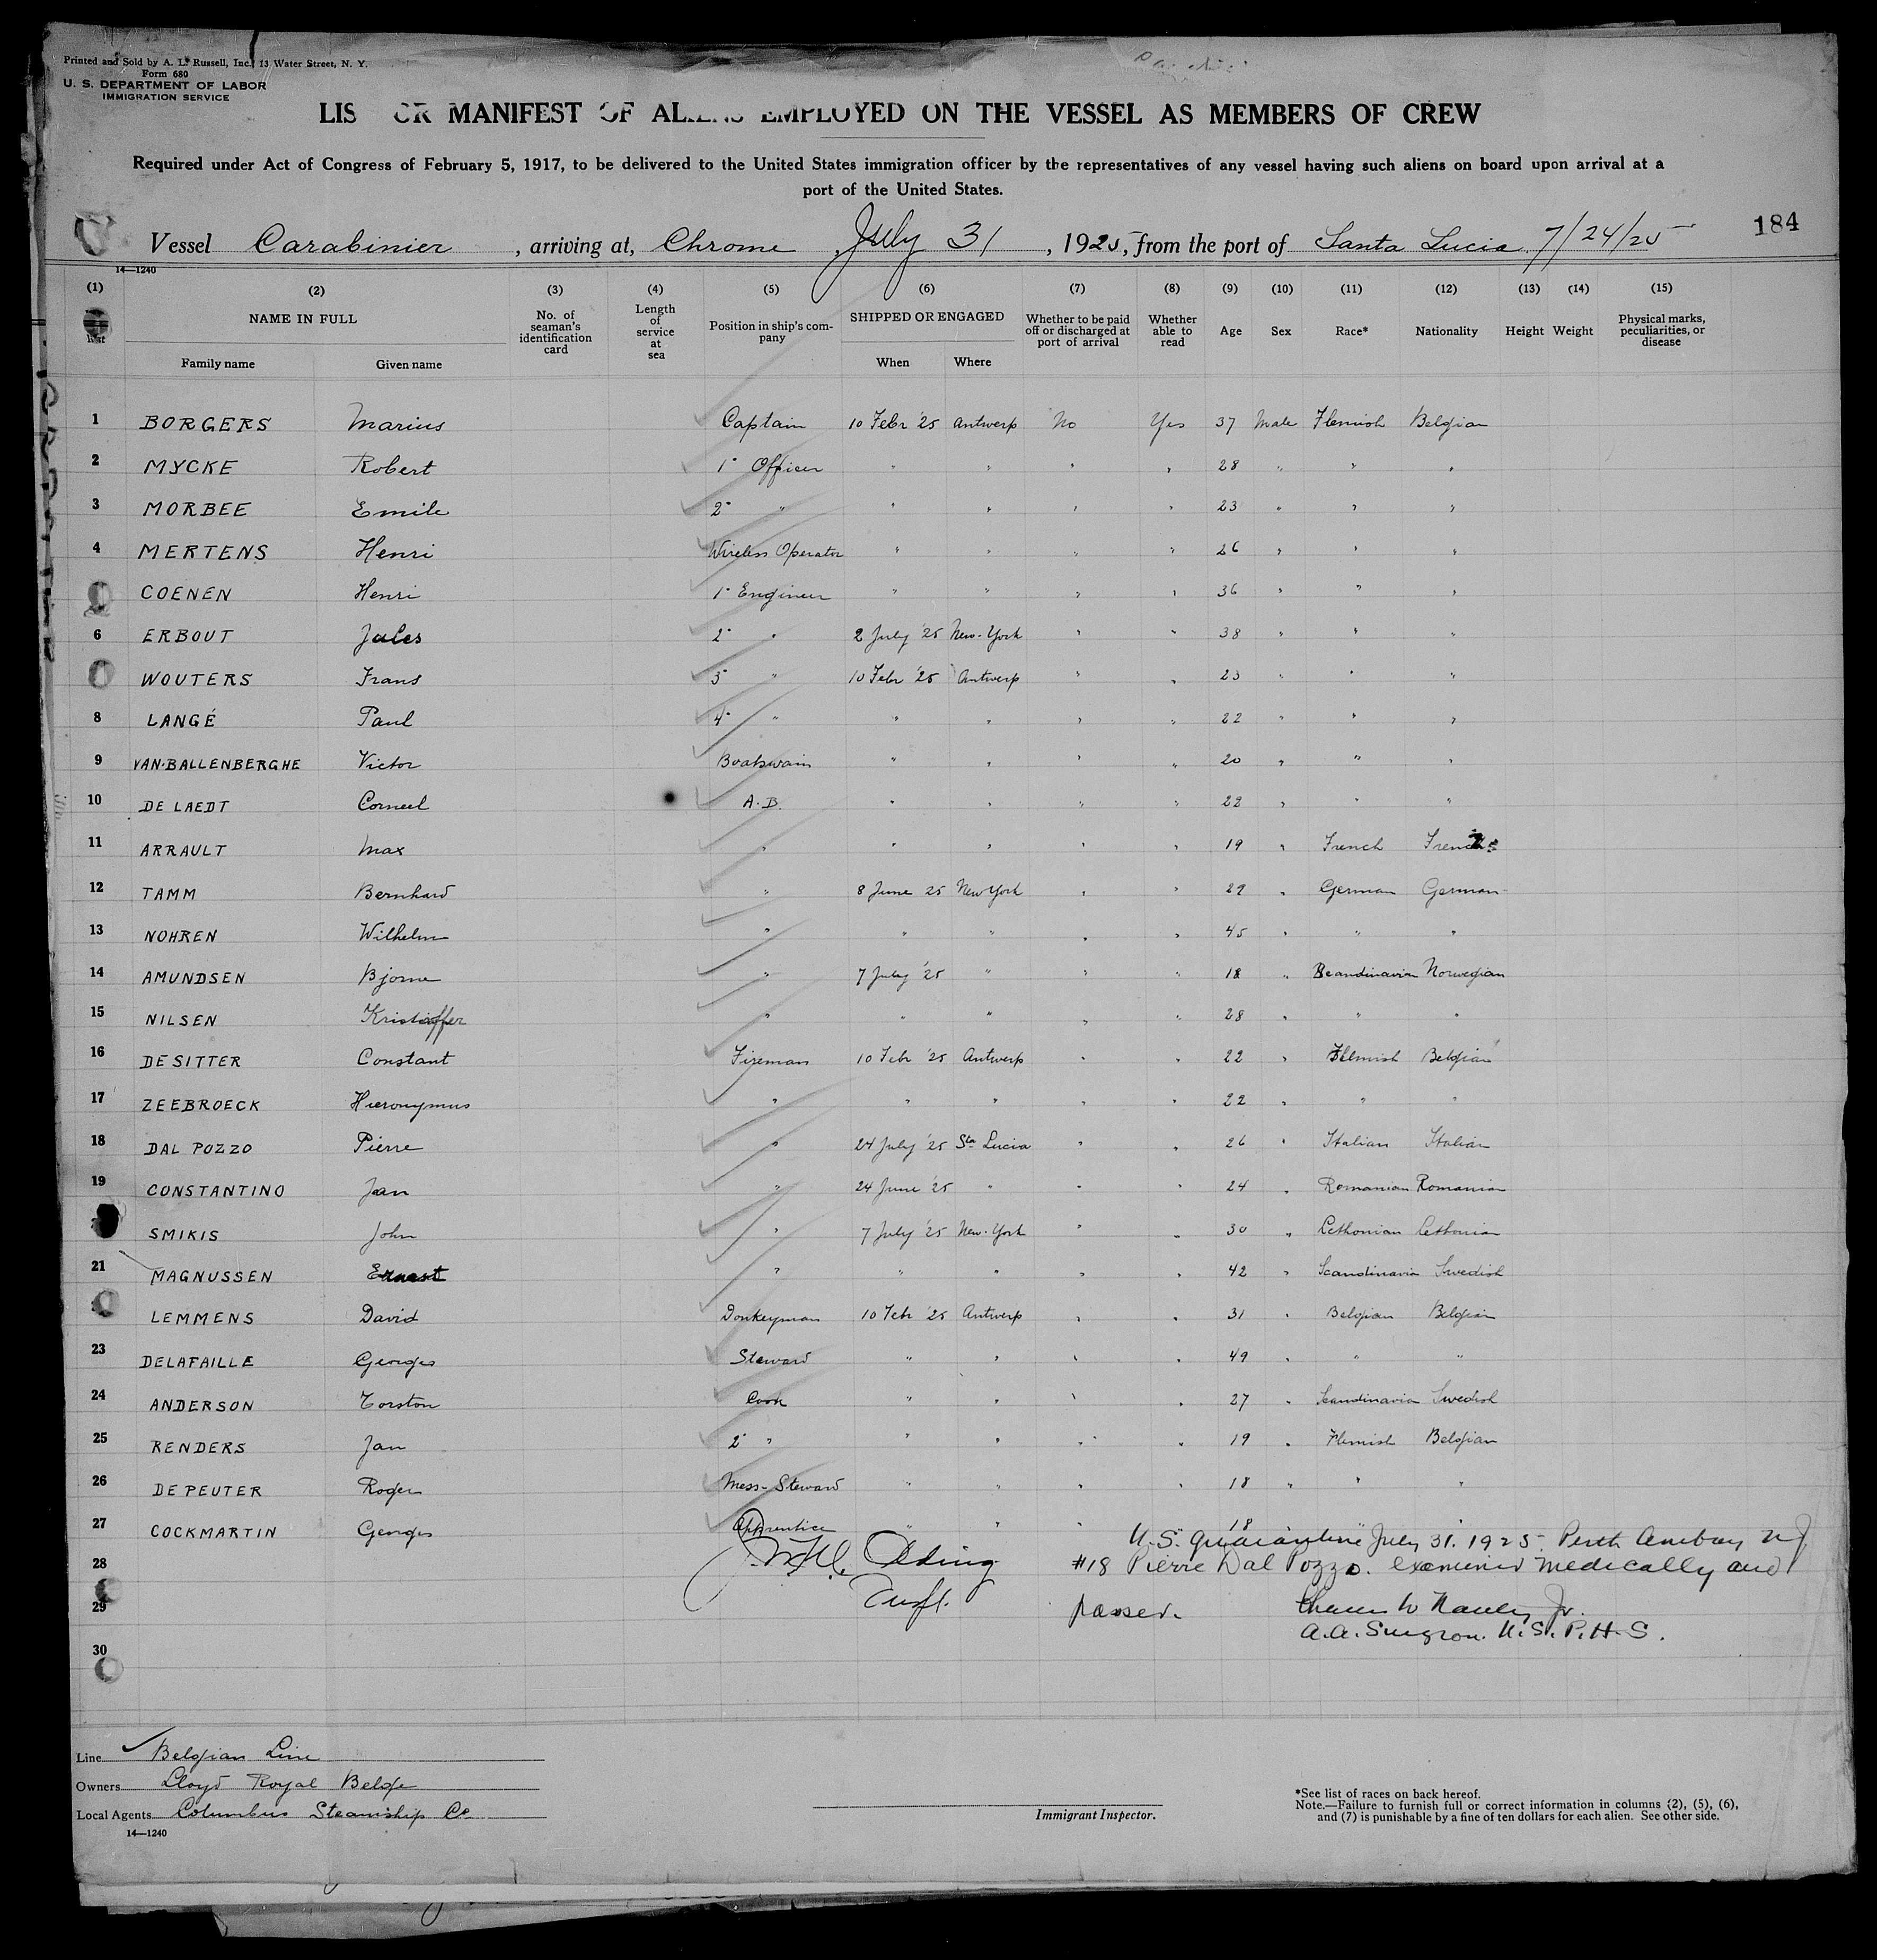 Printed and Sold by A. L. Russell, Inc., 13 Water Street, N. Y.
Form 680
U. S. DEPARTMENT OF LABOR
IMMIGRATION SERVICE
LIS OR MANIFEST OF ALIENS EMPLOYED ON THE VESSEL AS MEMBERS OF CREW
Required under Act of Congress of February 5, 1917, to be delivered to the United States immigration officer by the representatives of any vessel having such aliens on board upon arrival at a
port of the United States.
184
Vessel Carabinier, arriving at, Chrome, July 31, 1925, from the port of Santa Lucia 7/24/25
14—1240
(1) (2) (3) (4) (5) (6) (7) (8) (9) (10) (11) (12) (13) (14) (15)
list NAME IN FULL Family name Given name No. of seaman's identification card Length of service at sea Position in ship's company SHIPPED OR ENGAGED When Where Whether to be paid off or discharged at port of arrival Whether able to read Age Sex Race* Nationality Height Weight Physical marks, peculiarities, or disease
1 BORGERS Marius Captain 10 Febr '25 Antwerp No Yes 37 Male Flemish Belgian
2 MYCKE Robert 1° Officer " " " " 28 " " "
3 MORBEE Emile 2° " " " " " 23 " " "
4 MERTENS Henri Wireless Operator " " " " 26 " " "
COENEN Henri 1° Engineer " " " " 36 " " "
6 ERBOUT Jules 2° " 2 July '25 New-York " " 38 " " "
WOUTERS Frans 3° " 10 Febr '25 Antwerp " " 23 " " "
8 LANGÉ Paul 4° " " " " " 22 " " "
9 VAN-BALLENBERGHE Victor Boatswain " " " " 20 " " "
10 DE LAEDT Corneel A.B. " " " " 22 " " "
11 ARRAULT Max " " " " " 19 " French French
12 TAMM Bernhard " 8 June 25 New York " " 29 " German German
13 NOHREN Wilhelm " " " " " 45 " " "
14 AMUNDSEN Bjorne " 7 July '25 " " " 18 " Scandinavian Norwegian
15 NILSEN Kristoffer " " " " " 28 " " "
16 DESITTER Constant Fireman 10 Febr '25 Antwerp " " 22 " Flemish Belgian
17 ZEEBROECK Hieronymus " " " " " 22 " " "
18 DAL POZZO Pierre " 24 July '25 Sta Lucia " " 26 " Italian Italian
19 CONSTANTINO Jan " 24 June '25 " " " 24 " Romanian Romanian
SMIKIS John " 7 July '25 New-York " " 30 " Lethonian Lethonian
21 MAGNUSSEN Ernest " " " " " 42 " Scandinavia Swedish
LEMMENS David Donkeyman 10 Febr '25 Antwerp " " 31 " Belgian Belgian
23 DELAFAILLE Georges Steward " " " " 49 " " "
24 ANDERSON Torston Cook " " " " 27 " Scandinavia Swedish
25 RENDERS Jan 2° " " " " " 19 " Flemish Belgian
26 DE PEUTER Roger Mess-Steward " " " " 18 " " "
27 COCKMARTIN Georges Apprentice " " " 18 " "
U.S. Quarantine July 31. 1925. Perth Amboy NJ
28 #18 Pierre Dal Pozzo. examined medically and
29 passed.
A.A. Surgeon. U.S.P.H.S.
30
Line Belgian Line
Owners Lloyd Royal Belge
Local Agents Columbus Steamship Co
14—1240
Immigrant Inspector.
*See list of races on back hereof.
Note.—Failure to furnish full or correct information in columns (2), (5), (6),
and (7) is punishable by a fine of ten dollars for each alien. See other side.